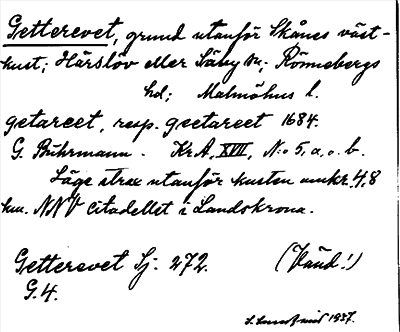 Getterevet, grund utanför Skånes väst-
kust; Härslöv eller Säby sn; Rönnebergs
hd; Malmöhus l.
getareet, resp. geetareet 1684.
G. Buhrmann. KrA, XVII, N:o 5, a, o. b.
Läge strax utanför kusten omkr. 4,8
km. NNV citadellet i Landskrona.
Getterevet Sj. 272. (Vänd!)
G.4.
1937.